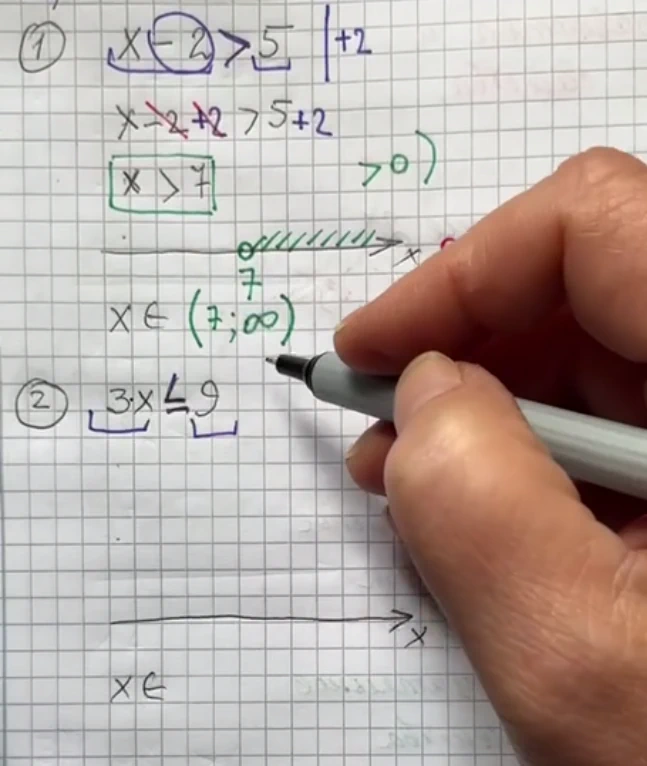 1 x - 2 > 5 | +2
x - 2 + 2 > 5 + 2
x > 7
> o )
x
7
x ∈ (7; ∞)
2 3·x ≤ 9
x
x ∈